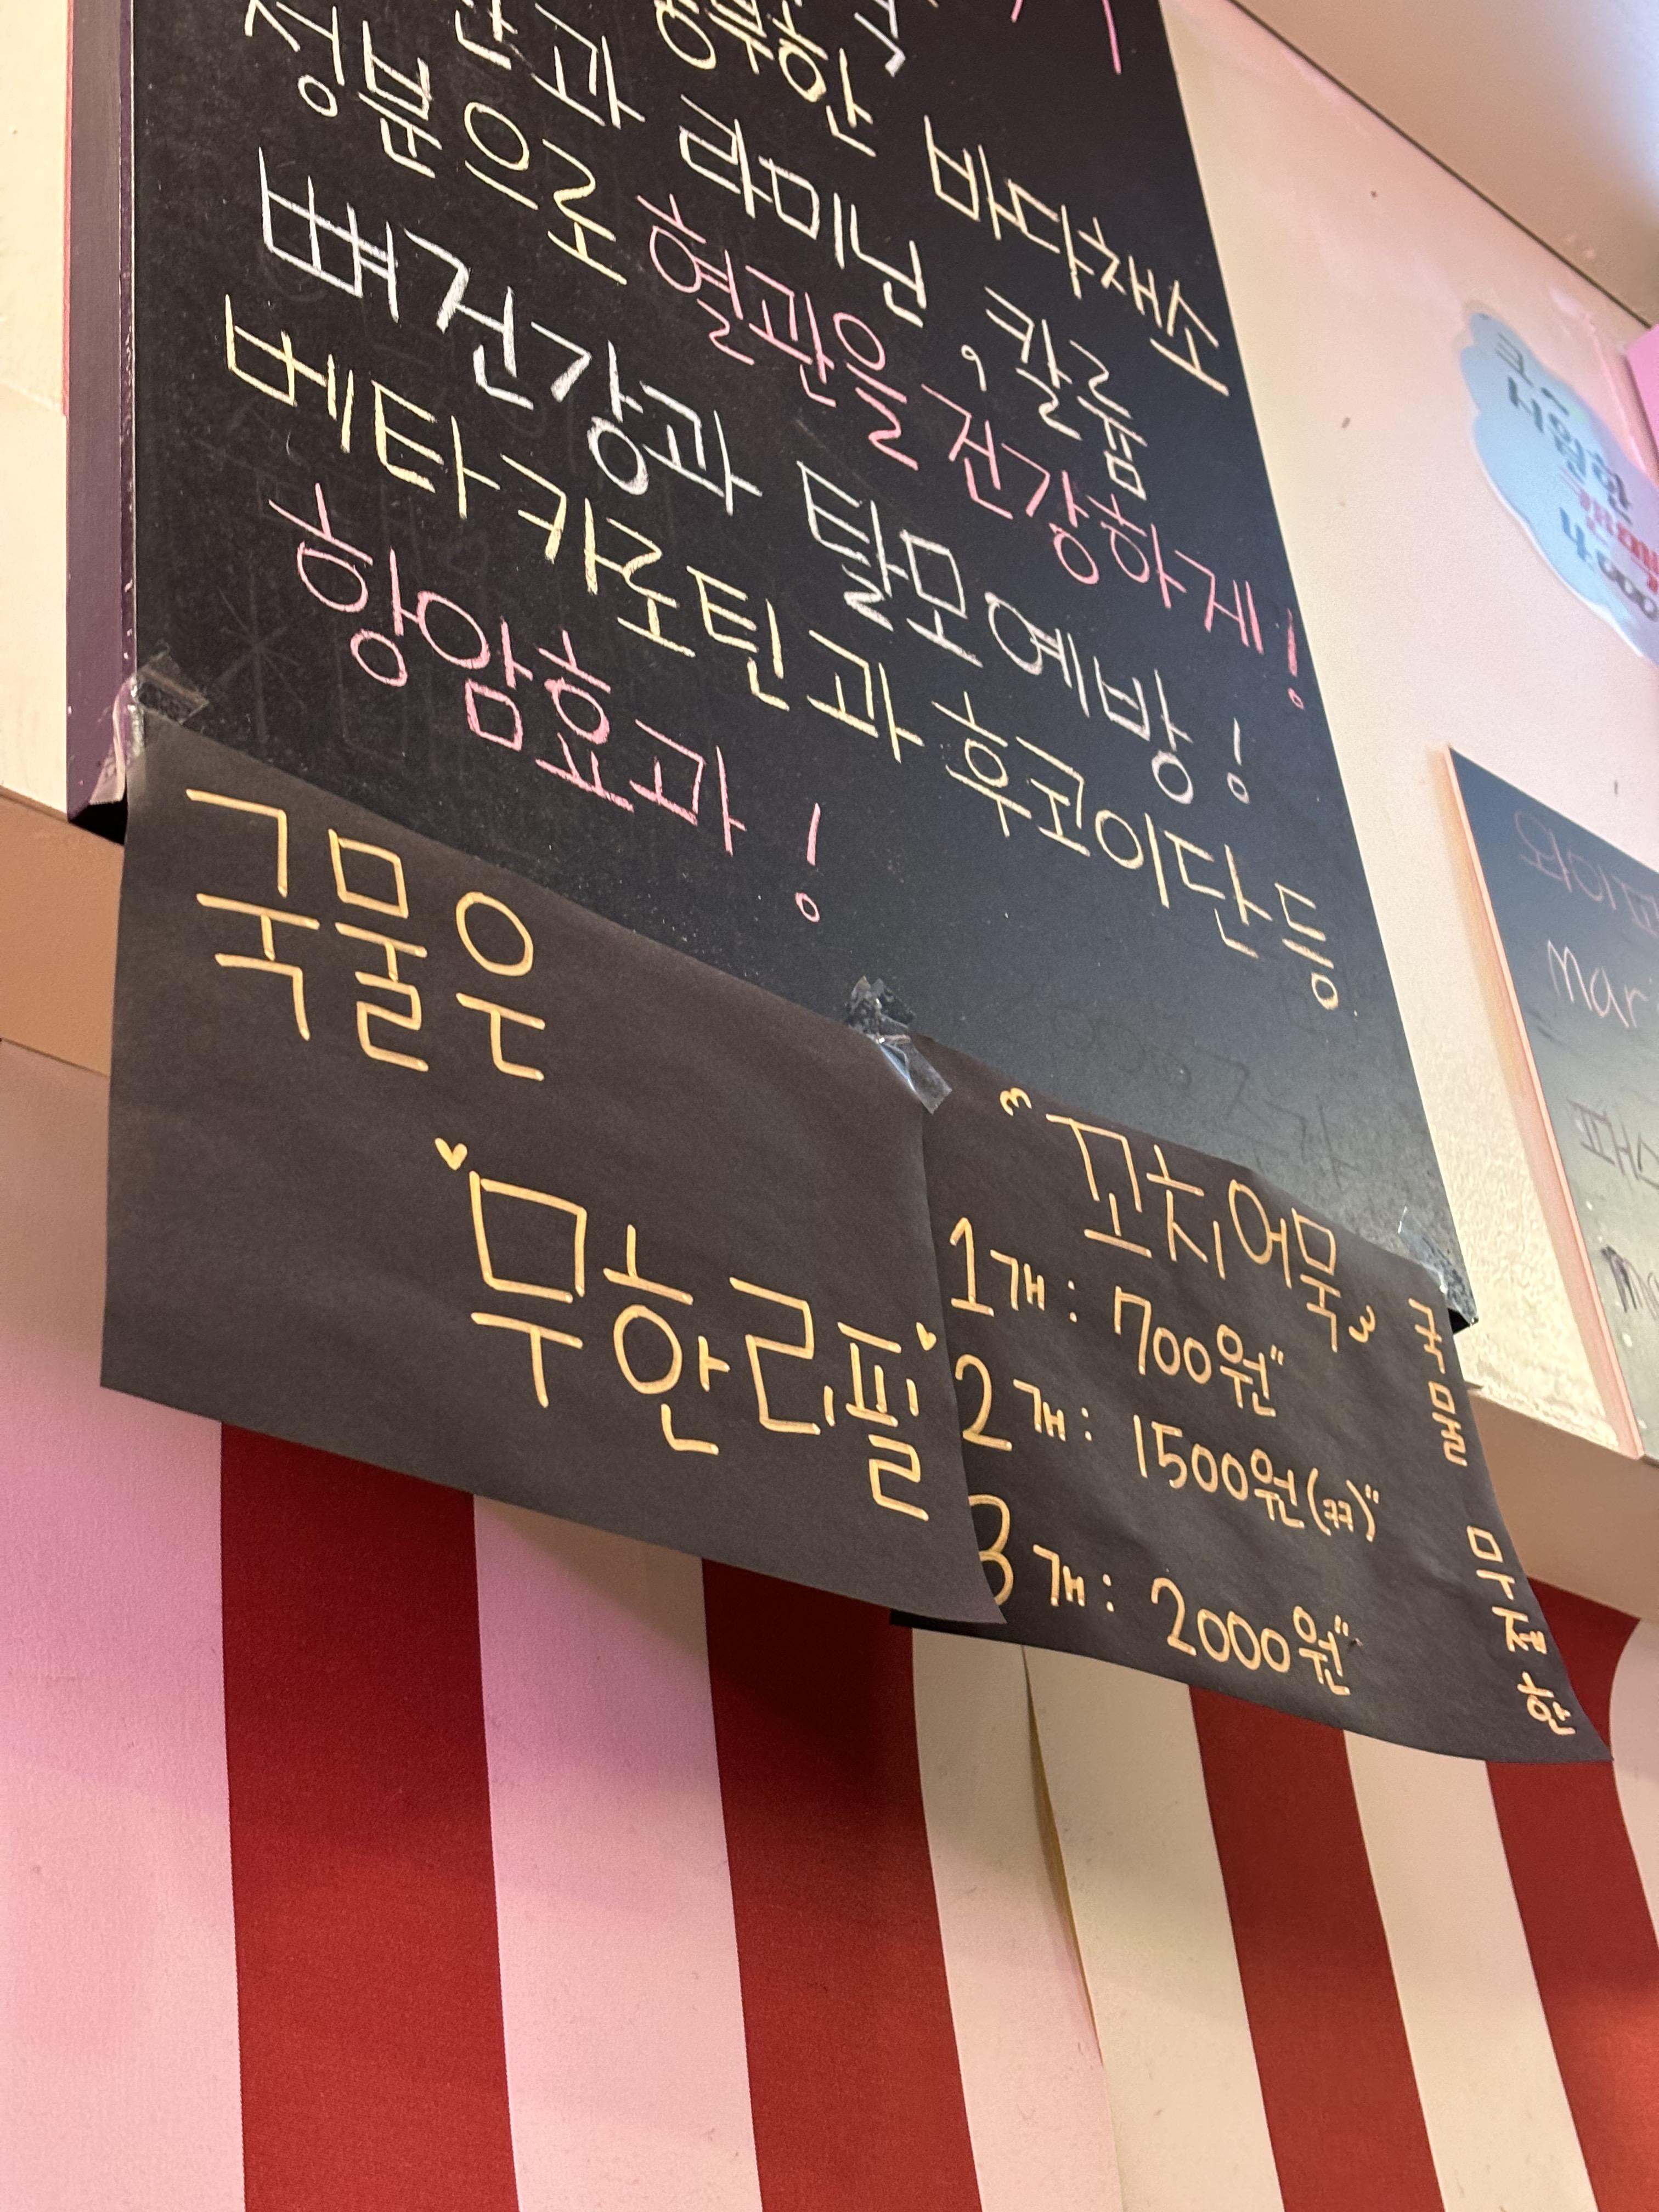 풍부한 바다채소
과 라미닌, 칼륨
성분으로 혈관을 건강하게!
뼈건강과 탈모예방!
베타카로틴과 후코이단 등
항암효과!
국물은
무한리필
"꼬치어묵"
1개: 700원"
2개: 1500원(ㄲㄲ)"
3개: 2000원"
국물 무제한
시원한
4,000
와이파
mar
패스